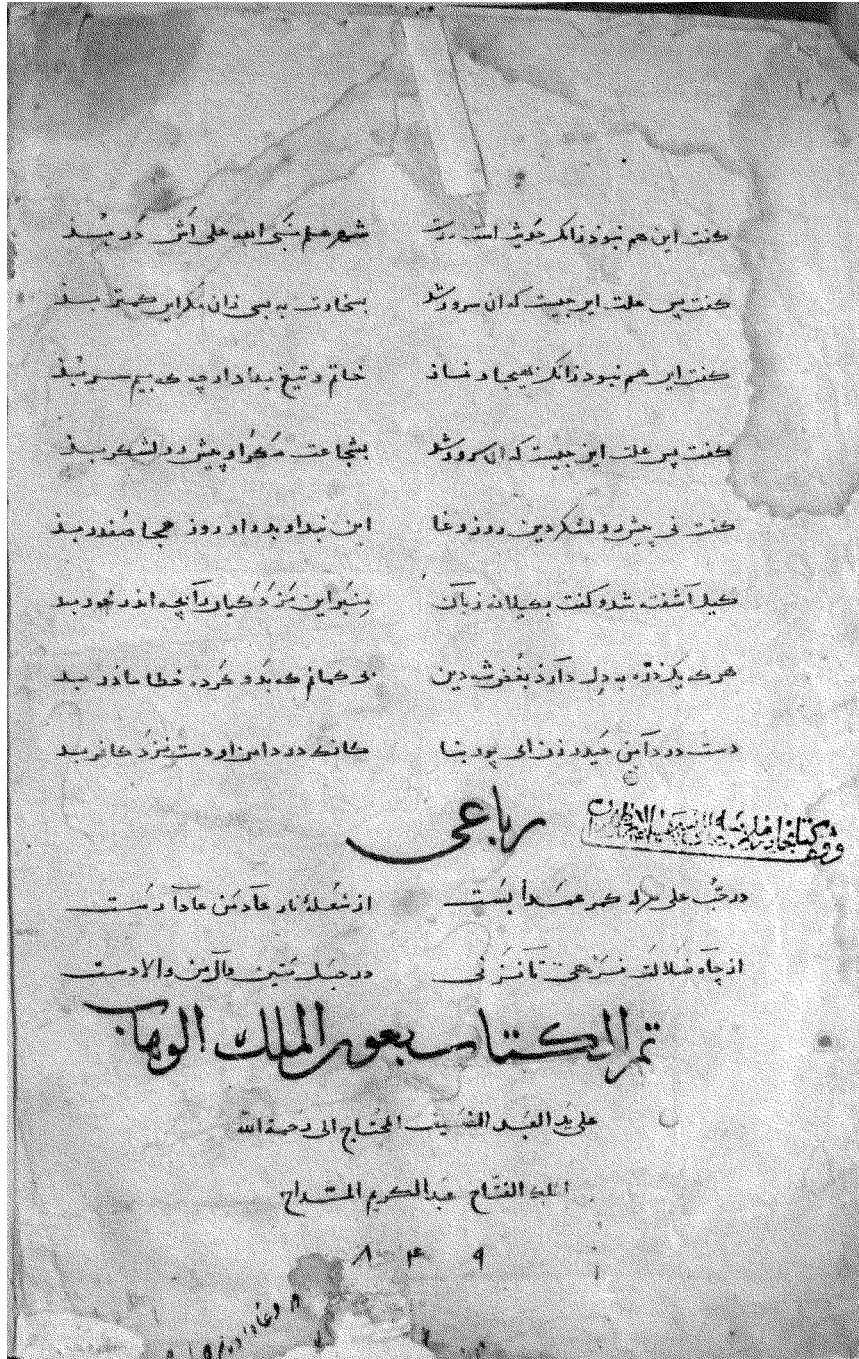 ٢٠٨
گفت این هم نبود زانک حدیث است درست شهر علم نبی الله علی اش در بذ
گفت پس علت این چیست که ان سرور شد بسخاوت به بسی زان مکر این کمتر بذ
گفت این هم نبود زانک بهیجا و نماز خاتم و تیغ بداد او چه که بیم سر بذ
گفت پس علت این چیست که ان سرور شد بشجاعت مکر او پیش رو لشکر بذ
گفت نی پیش رو لشکر دین روز وغا این نبد او بده او روز هیجا صفدر بذ
کیل آشفته شد و گفت بکیلانه زبان
هرک یک ذره به دل دارد بغض شه دین بی کمانم که بدو کرده خطا مادر بد
دست در دامن حیدر زن ای پور بنا کانک در دامن او دست نزد کافر بد
رباعی
در حب علی هر که کمر عمدا بست از شعلهٔ نار عاد من عاداه رست
از چاه ضلالت نرهی تا نزنی در حبل متین وال من والاه دست
تم الکتاب بعون الملک الوهاب
علی ید العبد الضعیف المحتاج الی رحمة الله
الملک الفتاح عبدالکریم المداح
٨۴٩